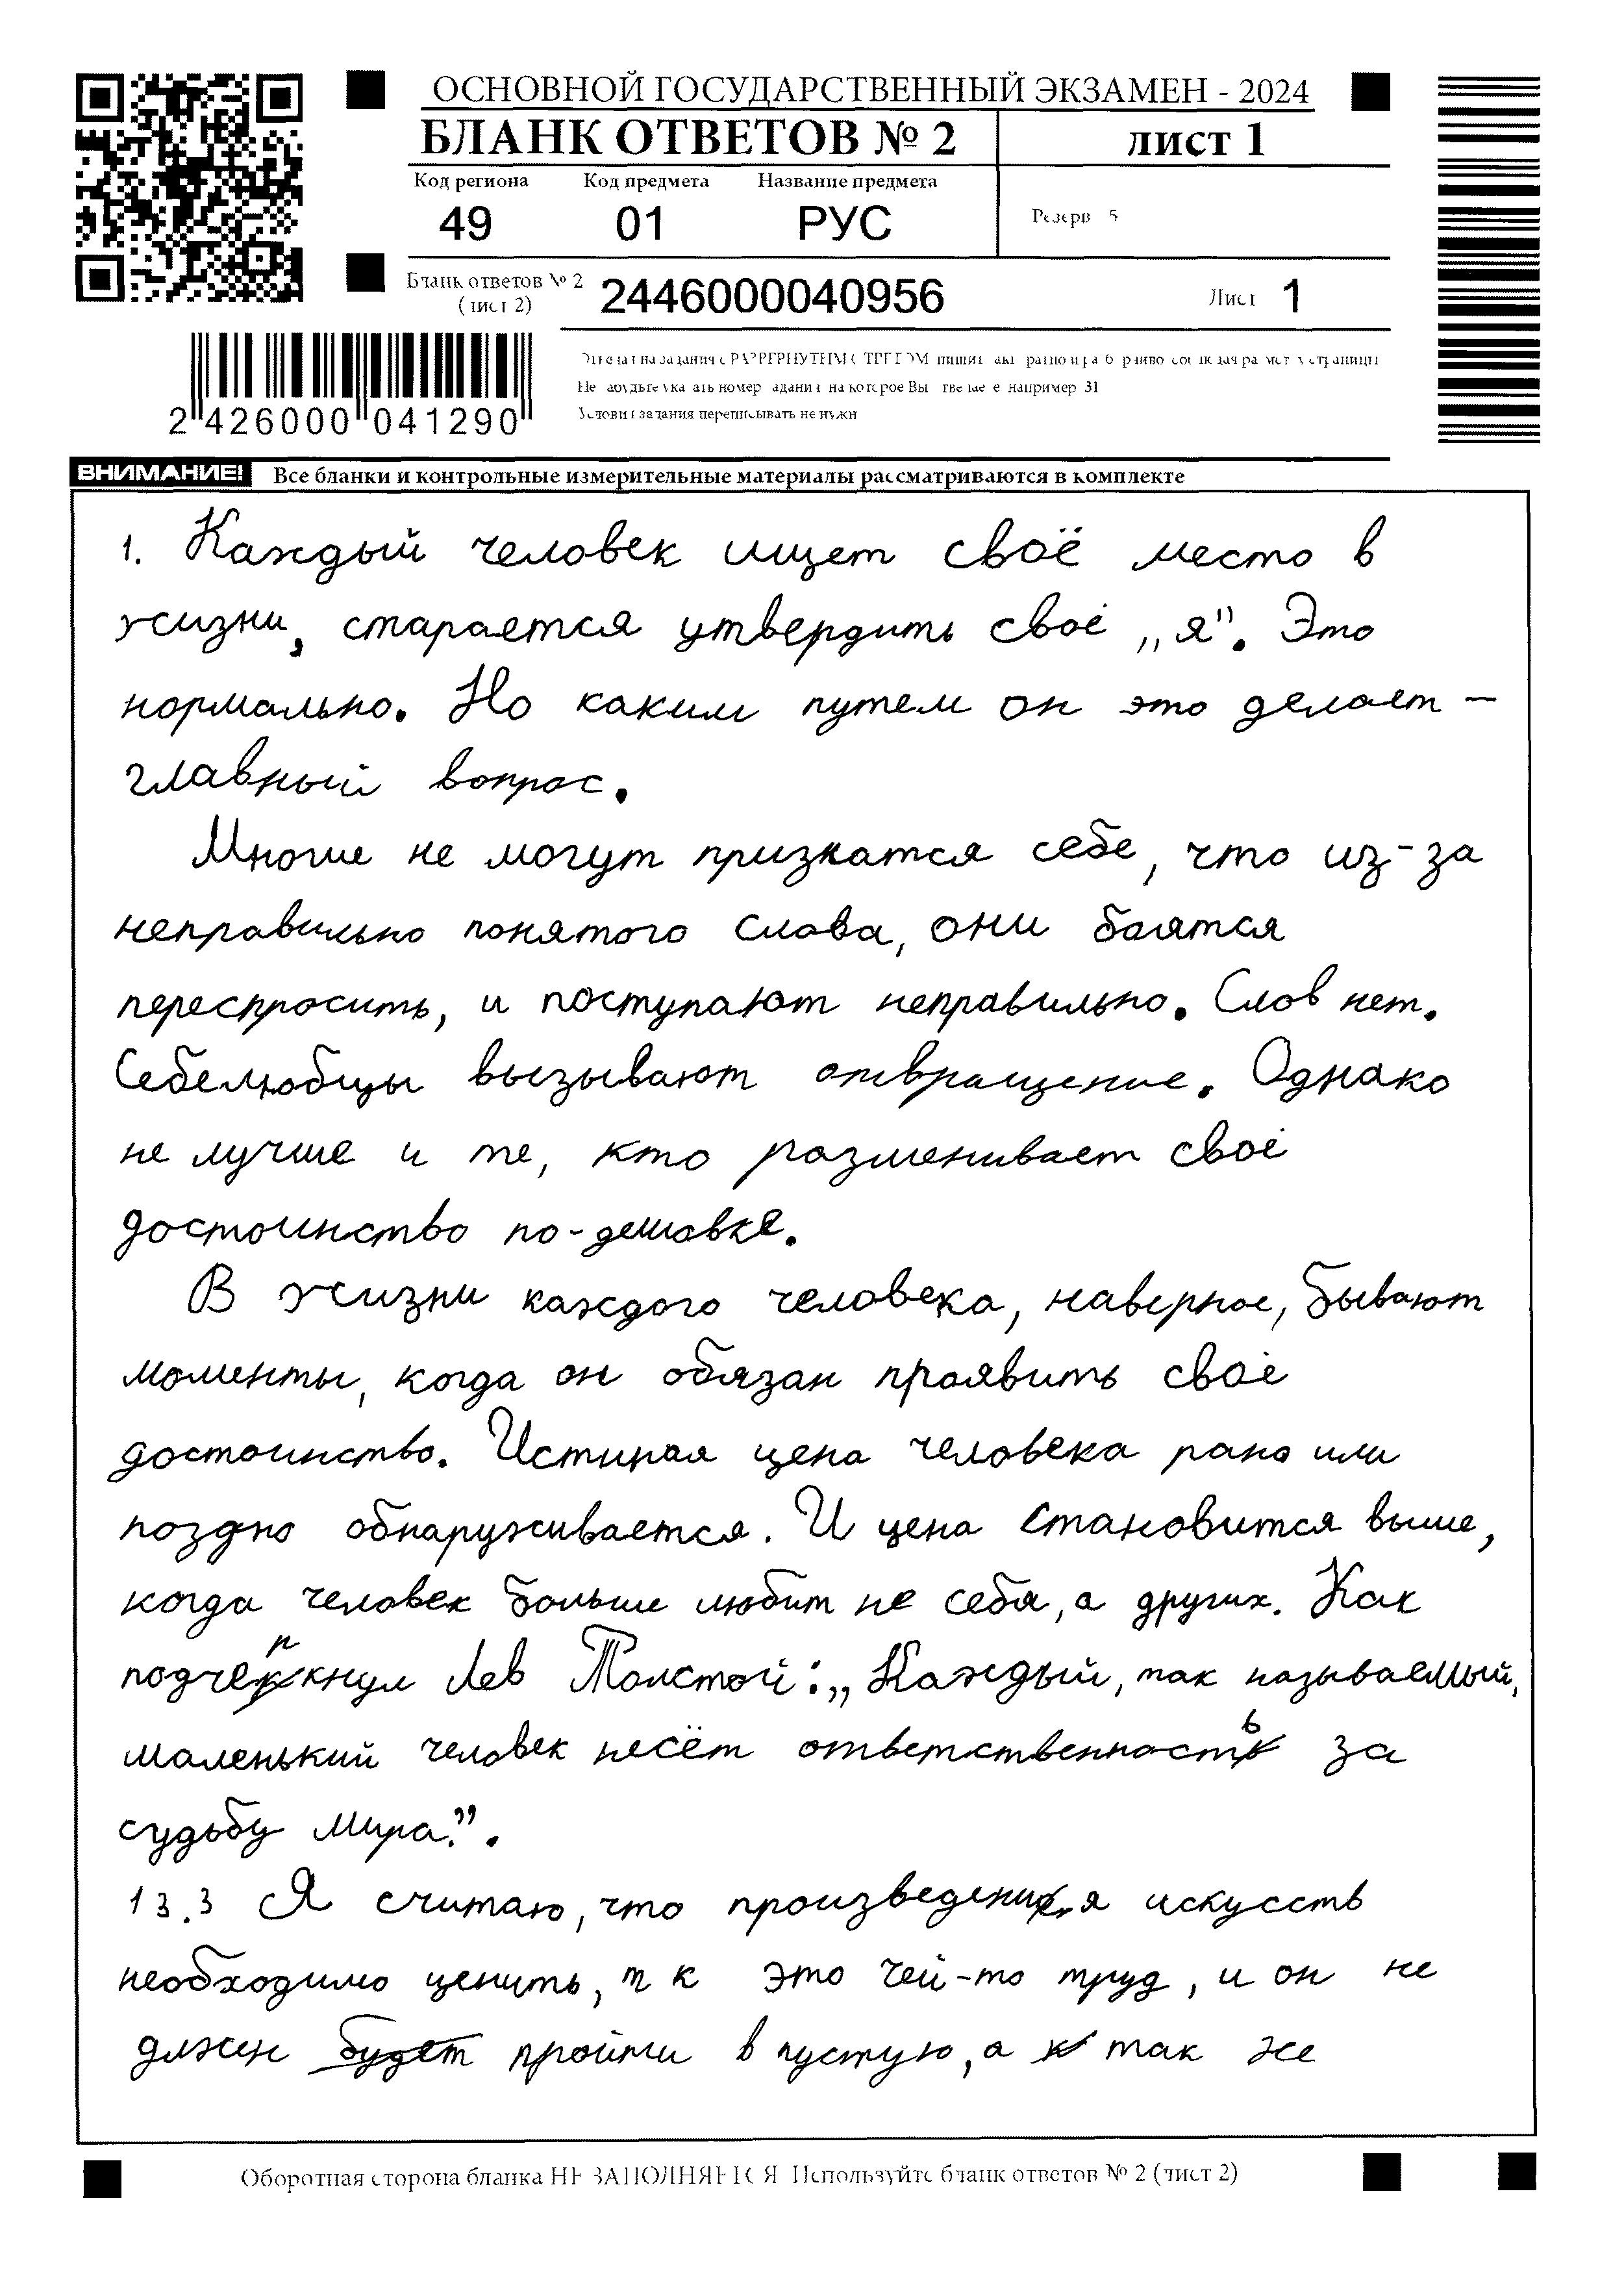 ОСНОВНОЙ ГОСУДАРСТВЕННЫЙ ЭКЗАМЕН - 2024
БЛАНК ОТВЕТОВ № 2
лист 1
Код региона Код предмета Название предмета
49 01 РУС
Резерв 5
Бланк ответов № 2
(лист 2)
2446000040956
Лист 1
2 426000 041290
Не номер на которое Вы например 31
задания переписывать не нужно
ВНИМАНИЕ! Все бланки и контрольные измерительные материалы рассматриваются в комплекте
1. Каждый человек ищет своё место в
жизни, старается утвердить своё „я". Это
нормально. Но каким путем он это делает –
главный вопрос.
Многие не могут признатся себе, что из-за
неправильно понятого слова, они боятся
переспросить, и поступают неправильно. Слов нет.
Себелюбцы вызывают отвращение. Однако
не лучше и те, кто разменивает своё
достоинство по-дешовке.
В жизни каждого человека, наверное, бывают
моменты, когда он обязан проявить своё
достоинство. Истиная цена человека рано или
поздно обнаруживается. И цена становится выше,
когда человек больше любит не себя, а других. Как
подчеркнул Лев Толстой: „Каждый, так называемый,
маленький человек несёт ответственность за
судьбу мира.".
13.3 Я считаю, что произведения искусств
необходимо ценить, т к это чей-то труд, и он не
длжен будет пройти в пустую, а так же
Оборотная сторона бланка НЕ ЗАПОЛНЯЕТСЯ. Используйте бланк ответов № 2 (лист 2)